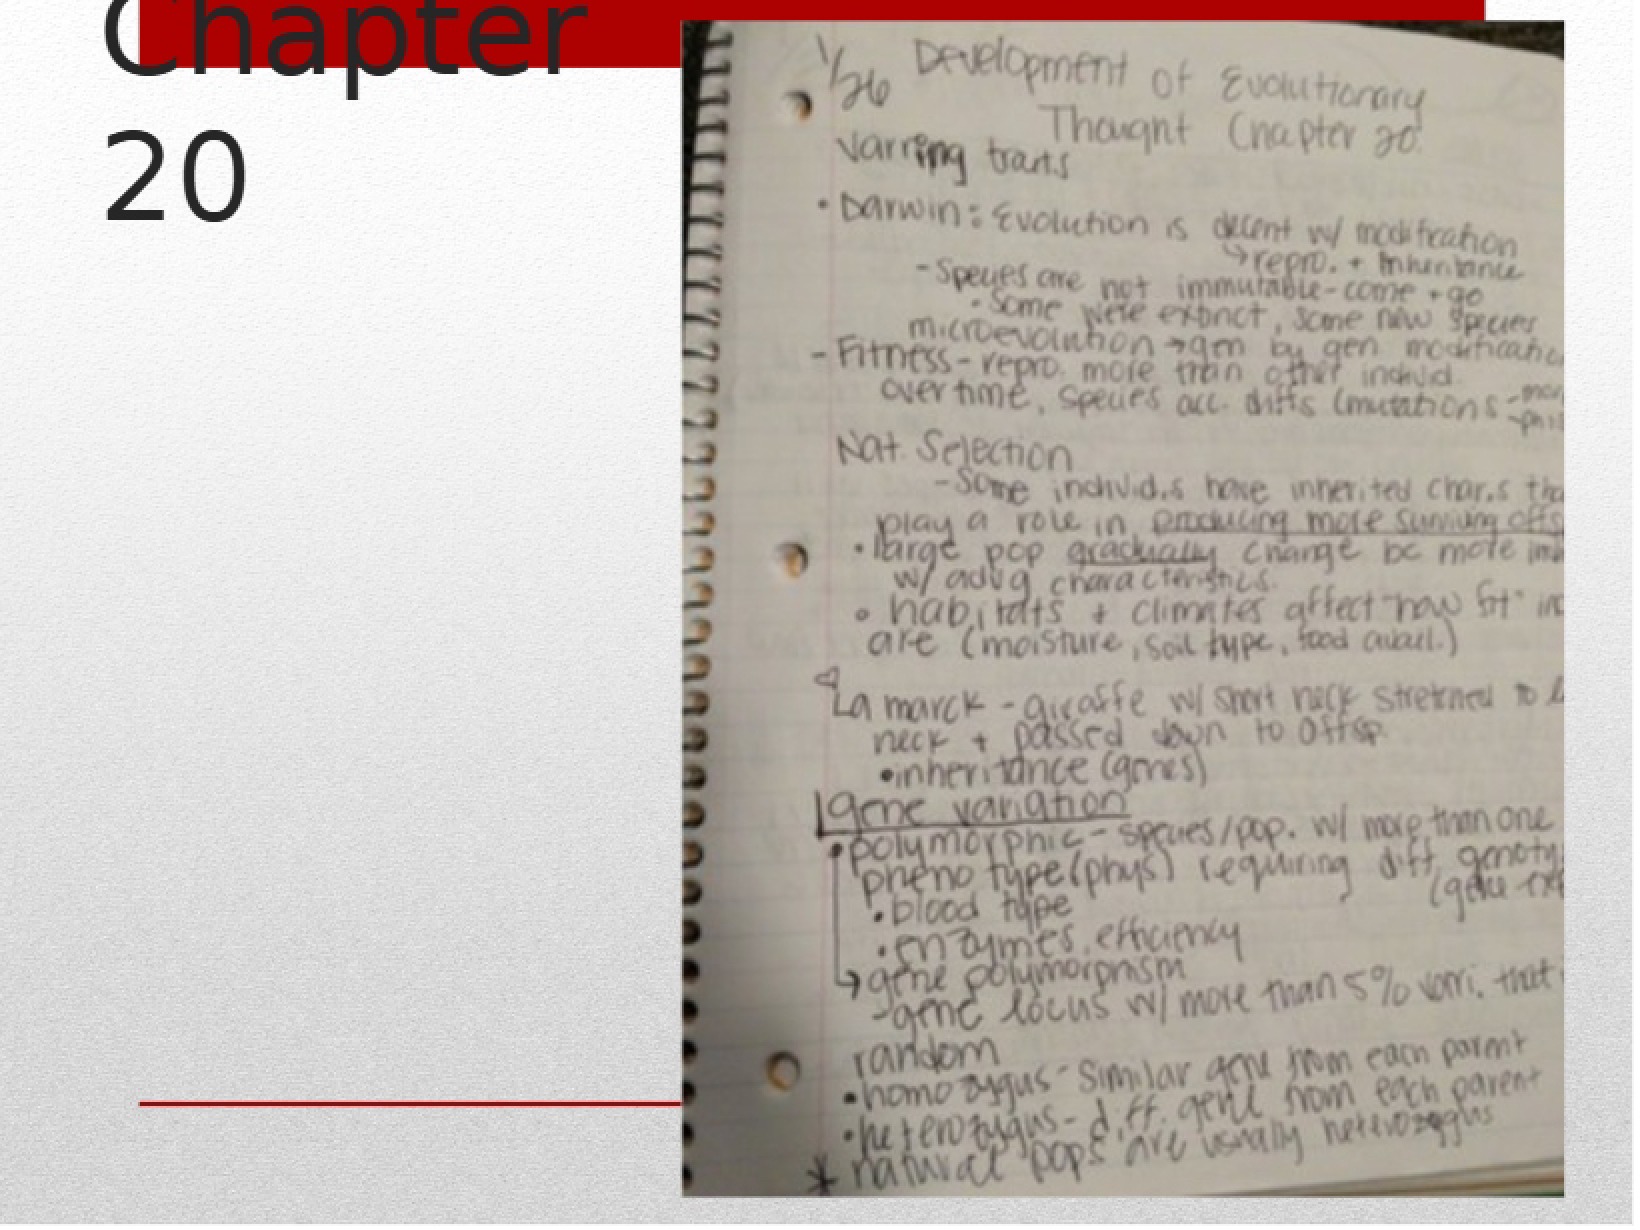 Chapter
20
1/26 Development of Evolutionary
Thought Chapter 20
Varring traits
• Darwin: Evolution is decent w/ modification
↳ repro. + inheritance
- Species are not immutable - come + go
• Some were extinct, some new species
microevolution → gen by gen modificatio
- Fitness - repro. more than other individ.
over time, species acc. diffs (mutations
Nat. Selection
- Some individ.s have inherited char.s tha
play a role in producing more surviving offs
• large pop gradually change bc more
w/ advg characteristics.
• habitats + climates affect "how fit" in
are (moisture, soil type, food avail.)
La marck - giraffe w/ short neck stretched to
neck + passed down to offsp.
• inheritance (genes)
gene variation
• polymorphic - species/pop. w/ more than one
pheno type (phys) requiring diff. genoty
(gene
• blood type
• enzymes. efficiency
↳ gene polymorphism
- gene locus w/ more than 5% vari. that
random
• homozygus - similar gene from each parent
• heterozygus - diff. gene from each parent
* natural pops are usually heterozygus